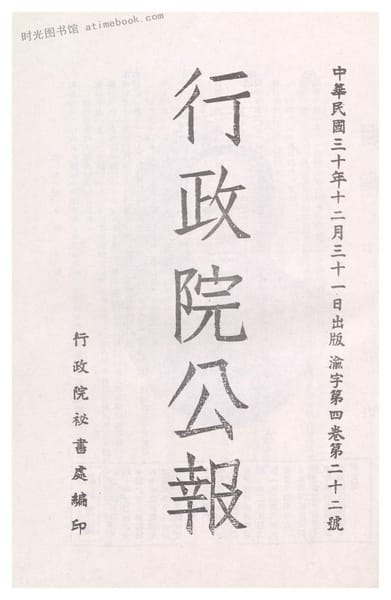 时光图书馆 atimebook.com
中華民國三十年十二月三十一日出版 渝字第四卷第二十二號
行政院公報
行政院祕書處編印